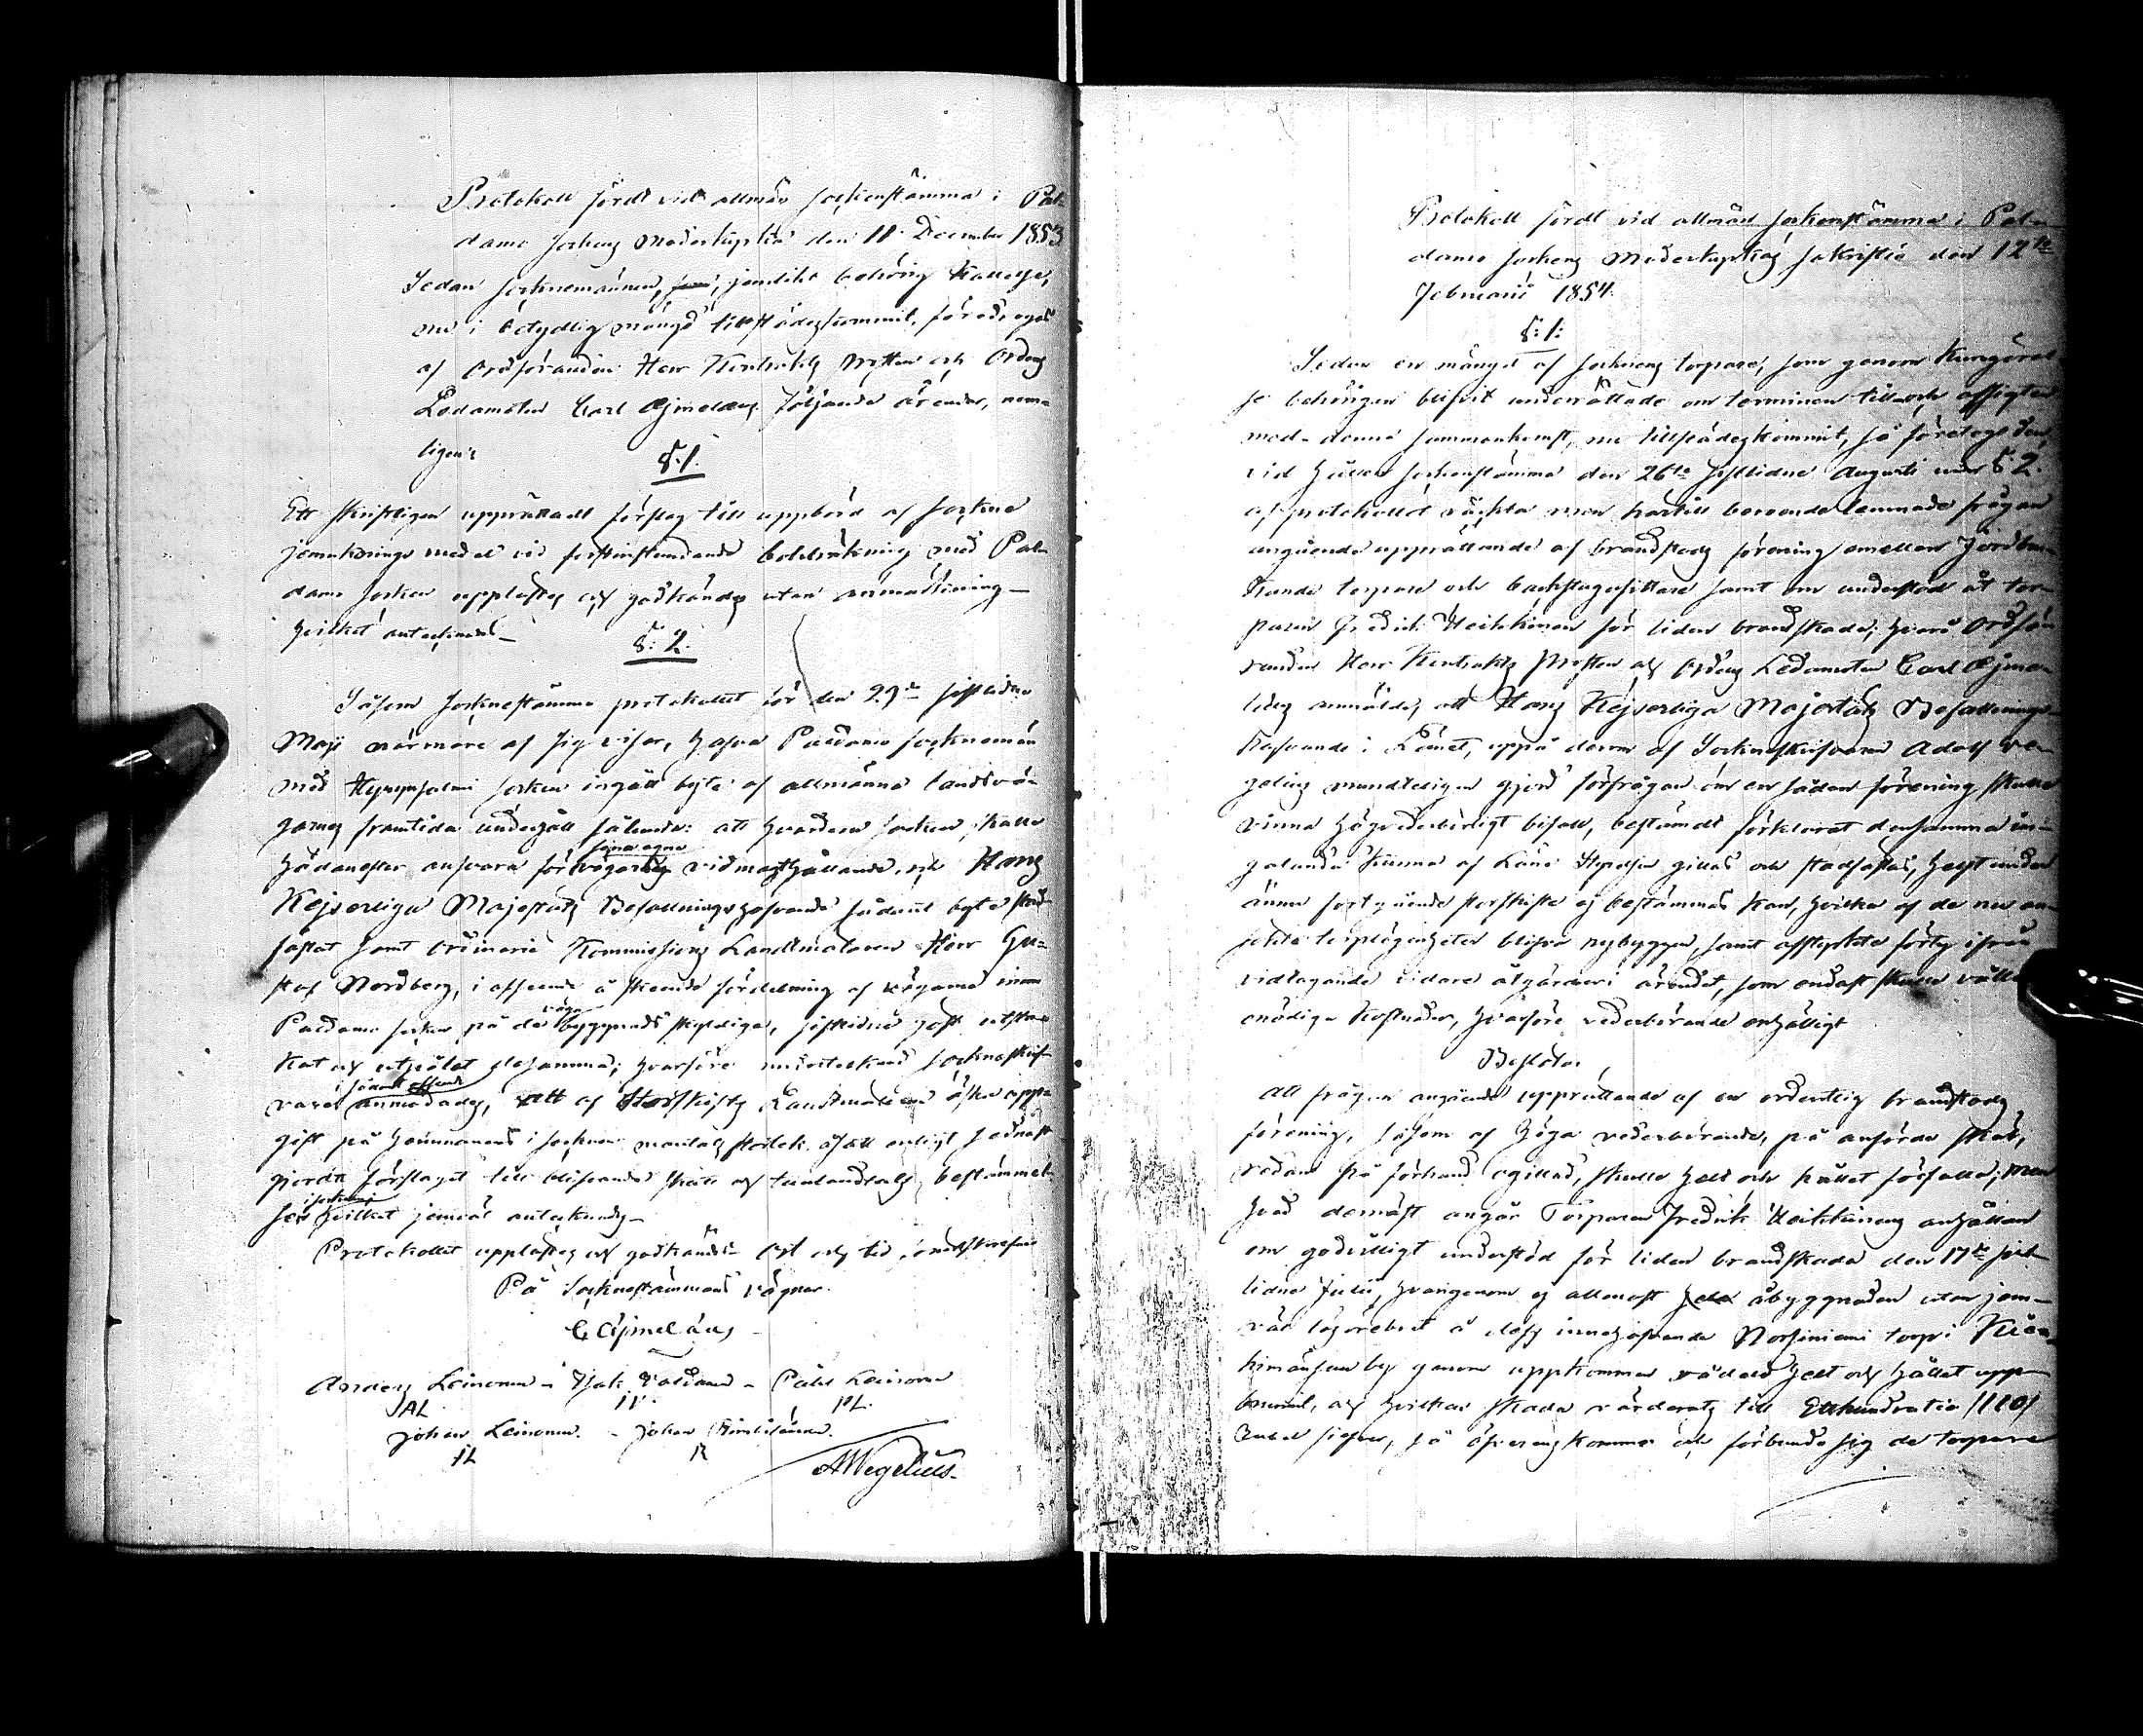 Protokoll fördt vid allmän sockenstämma i Pal-
damo sockens moderkyrka den 11 December 1853
Sedan sockenemännen, jemlikt behörig kallelse,
nu i betydlig mängd tillstädeskommit, föredrogos
af Ordföranden Herr Kontrakts Prosten och Ordens
Ledamoten Carl Ajmelæus följande ärender, nem-
ligen:
§. 1.
Ett skriftligen upprättadt förslag till uppbörd af Sockne
jemnknings medel vid förstinstundande boklräkning med Pal-
damo socken upplästes och godkändes utan anmärkning —
hvilket antecknades —
§. 2.
Såsom Socknestämmo protokollet för den 29de sistlidne
Maji närmare af sig visar, hafva Paldamo socknemän
med Hyrynsalmi socken ingått byte af allmänna landsvä-
garnes framtida underhåll sålunda: att hvardera socken skulle
hädanefter ansvara för sina egna vägars vidmagthållande, och Hans
Kejserliga Majestäts Befallningshafvande sådant byte stad-
fästat samt ordinarie Kommissions Landtmätaren Herr Gu-
staf Nordberg, i afseende å skeende fördelning af vägarne inom
Paldamo socken på de väga byggnads skyldige, sistlidne höst utstra-
kat och utpålat desamma; hvarföre undertecknad Socknaskrif-
vare anmodades, att af Storskifts Landtmätaren äska upp-
gift på hemmanens i socknen mantals storlek, såväl enligt sednast
gjorda förslaget till blifvande skatt och tunlandtals bestämmel-
ser hvilket jemväl antecknades —
Protokollet upplästes och godkändes. Ort och tid, som ofvanskrefne
På Sockenstämmans vägnar.
C Ajmelæus
Anders Leinonen — Isak Paldan — Påhl Leinonen
AL PL.
Johan Leinonen. — Johan Kimiläinen.
JL
AWegelius.
Protokoll fördt vid allmän sockenstämma i Pal-
damo sockens Moderkyrkas sakristia den 12te
Februarii 1854.
§: 1:
Sedan en mängd af sockens torpare, som genom kungörel-
se behörigen blifvit underrättade om terminen till och afsigten
med denna sammankomst, nu tillstädeskommit, så företogs den,
vid hållen sockenstämma den 26te sistlidne Augusti under §. 2.
af protokollet väckta men härtill beroende lemnade frågan
angående upprättande af brandstods förening emellan jordbru-
kande torpare och backstugusittare samt om understöd åt tor-
paren Fredrik Heikkinen för liden brandskada; hvarå Ordfö-
randen Herr Kontrakts Prosten och Ordens Ledamoten Carl Ajme-
læus anmälde, att Hans Kejserliga Majestäts Befallnings-
hafvande i Länet, uppå derom af Sockneskrifvaren Adolf We-
gelius mundteligen gjord förfrågan om en sådan förening skulle
vinna högvederbörligt bifall, bestämdt förklarat densamma in-
galunda kunna af Läne Styrelsen gillas och stadfästas, helst under
ännu fortgående storskifte ej bestämmas kan, hvilka af de nu an-
sedde torplägenheter blifva nybyggen, samt afstyrkte förty ifrån
vidtagande vidare åtgärder i ärendet, som endast skulle vålla
onödiga kostnader, hvarföre vederbörande enhälligt
Beslöto.
Att frågan angående upprättande af en ordentlig brandstods
förening, såsom af höga vederbörande, på anförda skäl,
redan på förhand ogillad, skulle helt och hållet förfalla; men
hvad dernäst angår Torparen Fredrik Heikkinens anhållan
om godvilligt understöd för liden brandskada den 17de sist-
lidne Julii, hvarigenom ej allenast åbyggnaden utan jem-
väl lösörebot å dess innehafvande Norsiniemi torp i Kiä-
himänsun by genom uppkommen vådeld helt och hållet upp-
brunnit, och hvilken skada värderats till Etthundratio /110/
Rubel silfver, så öfverenskommo och förbundo sig de torpare